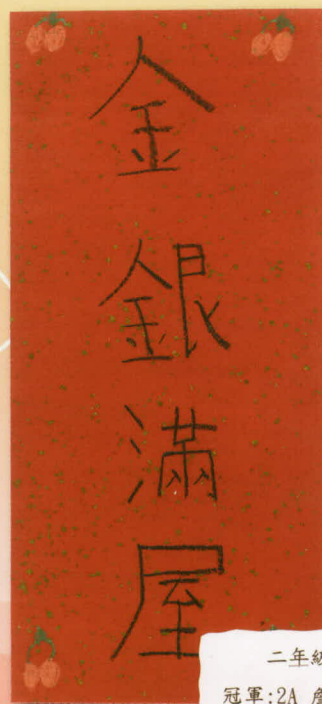 金銀滿屋
二年級
冠軍:2A